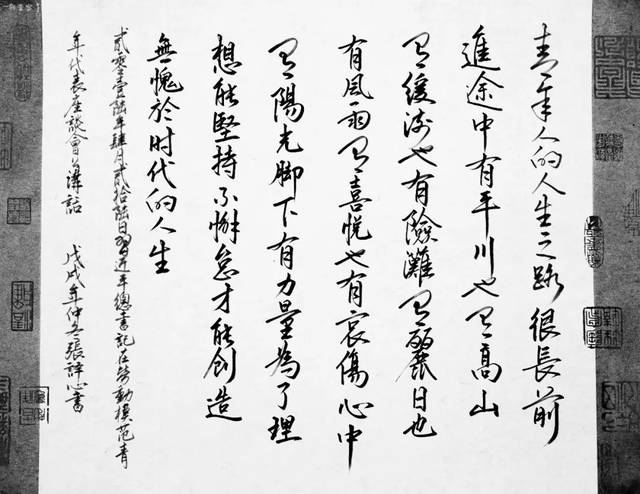 青年人的人生之路很長前
進途中有平川也有高山
有緩流也有險灘有麗日也
有風雨有喜悦也有哀傷心中
有陽光脚下有力量為了理
想能堅持不懈怠才能創造
無愧於时代的人生
貳零壹陸年肆月貳拾陸日習近平總書記在勞動模范青
年代表座談會上講話 戊戌年仲冬張心書